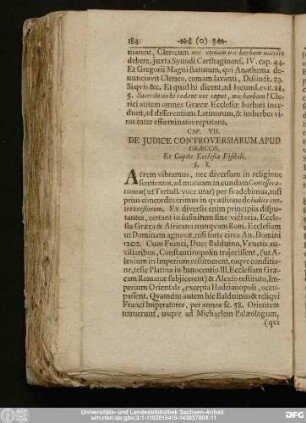 184 (0)
muerit, Clericum nec comam nec barbam nutrire
debere, juxta Synodi Carthaginens. IV. cap. 44.
Et Gregorii Magni statutum, qvi Anathema de-
nunciavit Clerico, comam laxanti, Distinct. 23.
Si qvis &c. Et quid hi dicent, ad locum Levit. 21.
5. Sacerdotes hi radent nec caput, nec barbam? Cle-
rici autem omnes Græcæ Ecclesiæ barbati ince-
dunt, ad differentiam Latinorum, & imberbes vi-
ros inter effœminatos reputant.
CAP. VII.
DE JUDICE CONTROVERSIARUM APUD
GRÆCOS,
Et Capite Ecclesiæ Visibili.
§. 1.
vibramus, nec diversum in religione
sentientes, ad mucuum in eundem
(ut Tertull. voce utar) per
prius concordes erimus in qvæstione de Judice con-
troversarum. Ex diversis enim principiis dispu-
tantes, certant in infinitum sine victoria. Eccle-
sia Græca & Africana nunqvam Rom. Ecclesiam
ut Dominam agnovit, nisi forte circa An. Domini
1202. Cum Franci, Duce Balduino, Venetis au-
xiliaribus, Constantinopolin trajecissent, (ut A-
lexium in Imperium restituerent, eaqve conditio-
ne, teste Platina in Innocentio III. Ecclesiam Græ-
cam Romanæ subjicerent) & Alexio restituto, Im-
perium Orientale, excepto Hadrianopoli, occu-
passent. Qvamdiu autem hic Balduinus & reliqvi
Franci Imperatores, per annos sc. 58. Orientem
tenuerunt, usqve ad Michaelem Palæologum,
(qvi
Universitäts- und Landesbibliothek Sachsen-Anhalt
DFG